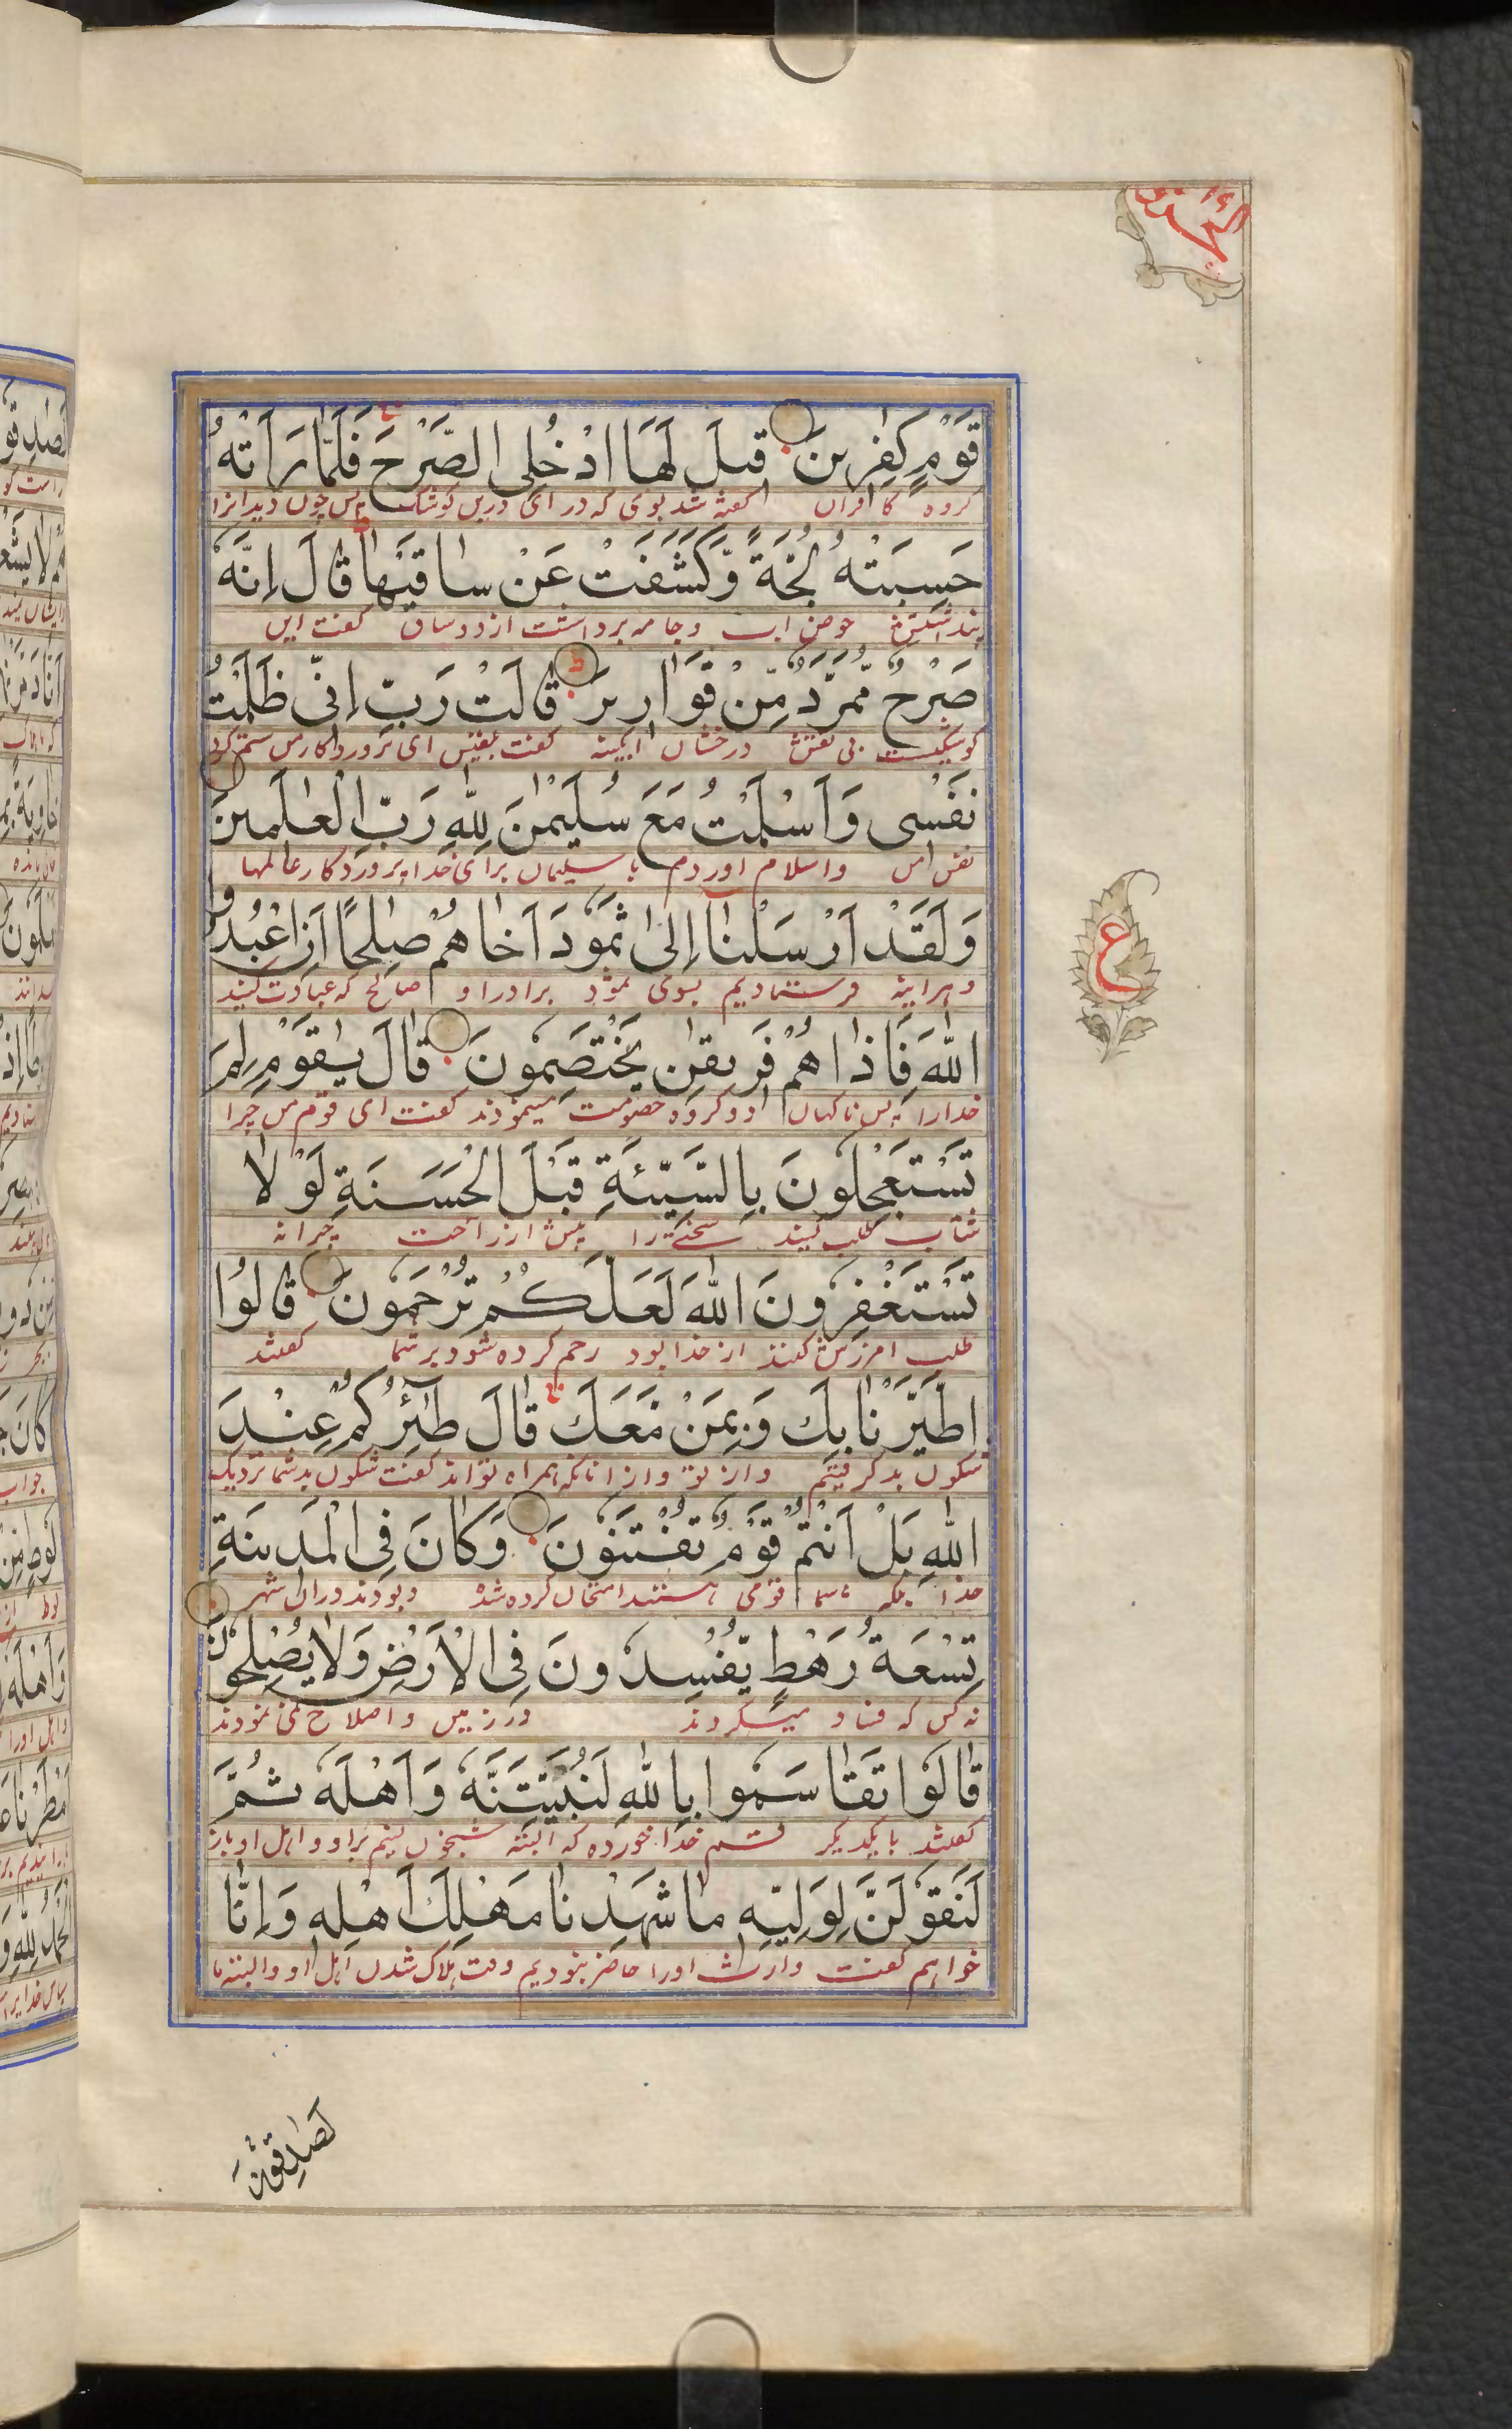 قَوْمٍ كٰفِرِينَ قِيلَ لَهَا ادْخُلِى الصَّرْحَ فَلَمَّا رَاَتْهُ
گروه کافران گفته شد بوی که در ای درین کوشک پس چون دید انرا
حَسِبَتْهُ لُجَّةً وَّكَشَفَتْ عَنْ سَاقَيْهَا قَالَ اِنَّهٗ
پنداشتش حوض اب و جامه برداشت از دو ساق گفت این
صَرْحٌ مُّمَرَّدٌ مِّنْ قَوَارِيرَ قَالَتْ رَبِّ اِنِّى ظَلَمْتُ
کوشکیست بی نقش درخشان ابکینه گفت بلقیس ای پروردگار من ستم کرد
نَفْسِى وَاَسْلَمْتُ مَعَ سُلَيْمٰنَ لِلّٰهِ رَبِّ الْعٰلَمِينَ
نفس من و اسلام اوردم با سلیمان برای خدا پروردگار عالمها
وَلَقَدْ اَرْسَلْنَا اِلٰى ثَمُودَ اَخَاهُمْ صٰلِحًا اَنِ اعْبُدُوا
و هراینه فرستادیم بسوی ثمود برادر او صالح که عبادت کنید
اللّٰهَ فَاِذَا هُمْ فَرِيقٰنِ يَخْتَصِمُونَ قَالَ يٰقَوْمِ لِمَ
خدارا پس ناکهان دو گروه خصومت مینمودند گفت ای قوم من چرا
تَسْتَعْجِلُونَ بِالسَّيِّئَةِ قَبْلَ الْحَسَنَةِ لَوْلَا
شتاب طلب کنید سختی را پیش از راحت چرا نه
تَسْتَغْفِرُونَ اللّٰهَ لَعَلَّكُمْ تُرْحَمُونَ قَالُوا
طلب امرزش کنند از خدا بود رحم کرده شود بر شما گفتند
اطَّيَّرْنَا بِكَ وَبِمَنْ مَّعَكَ قَالَ طٰٓئِرُكُمْ عِنْدَ
شکون بد گرفتیم از تو و از انانکه همراه تو اند گفت شکون بد شما نزدیک
اللّٰهِ بَلْ اَنْتُمْ قَوْمٌ تُفْتَنُونَ وَكَانَ فِى الْمَدِينَةِ
خدا بلکه شما قومی هستند امتحان کرده شده و بودند در ان شهر
تِسْعَةُ رَهْطٍ يُّفْسِدُونَ فِى الْاَرْضِ وَلَا يُصْلِحُونَ
نه کس که فساد میکردند در زمین و اصلاح نمی نمودند
قَالُوا تَقَاسَمُوا بِاللّٰهِ لَنُبَيِّتَنَّهٗ وَاَهْلَهٗ ثُمَّ
گفتند با یکدیکر قسم خدا خورده که البته شبخون کنیم بر او و اهل او باز
لَنَقُولَنَّ لِوَلِيِّهٖ مَا شَهِدْنَا مَهْلِكَ اَهْلِهٖ وَاِنَّا
خواهیم گفت وارث اورا حاضر نبودیم وقت هلاک شدن اهل او و البته ما
لَصٰدِقُونَ
ع